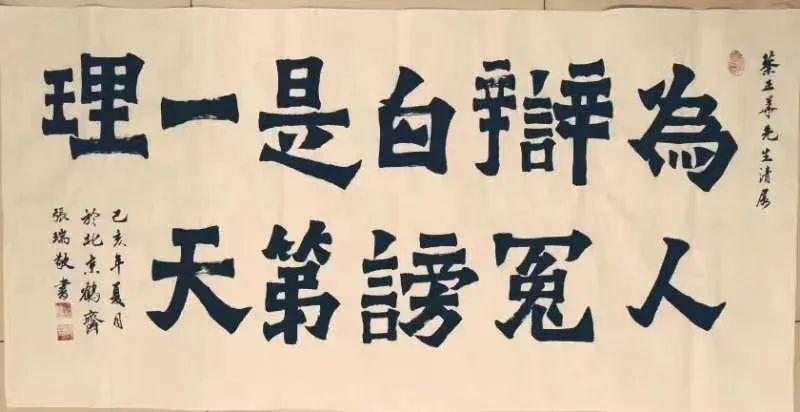 蔡正華先生清属
為人
辯冤
白謗
是第
一天
理
己亥年夏月
於北京鶴齋
張瑞敬書